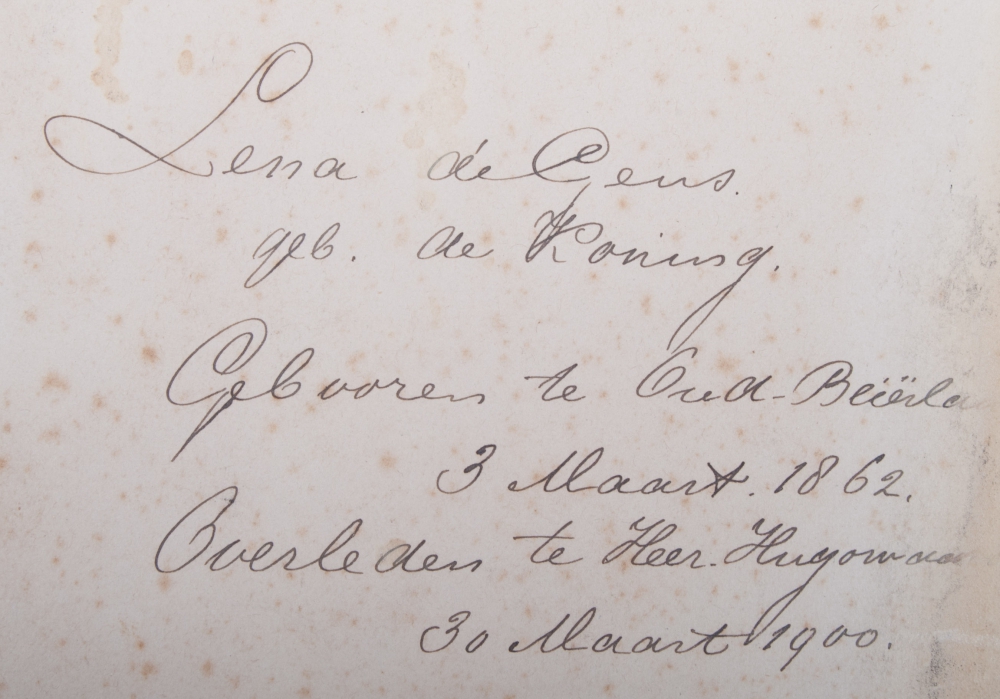 Lena de Geus.
geb. de Koning.
Geboren te Oud-Beierla
3 Maart. 1862.
Overleden te Heer-Hugowaa
30 Maart 1900.